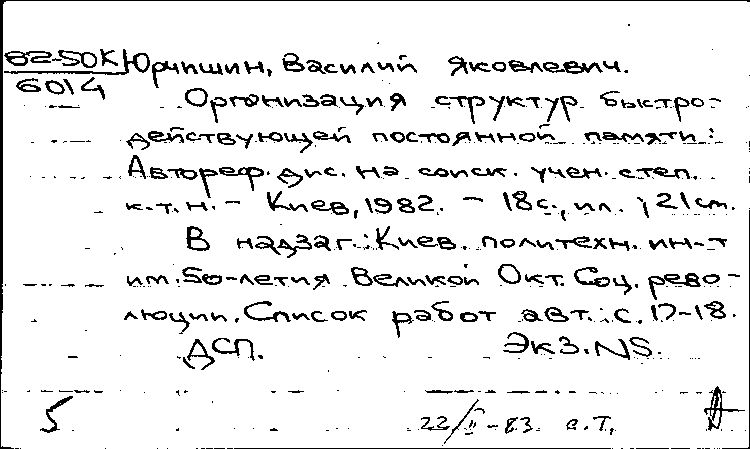 82-50К Юрчишин, Василий Яковлевич.
6014
Организация структур быстро-
действующей постоянной памяти:
Автореф. дис. на соиск. учен. степ.
к.т.н. - Киев, 1982. - 18с., ил.; 21см.
В надзаг.: Киев. политехн. ин-т
им. 50-летия Великой Окт. Соц. рево-
люции. Список работ авт.: с. 17-18.
ДСП. Экз. №5.
5 22/II-83 а.т.